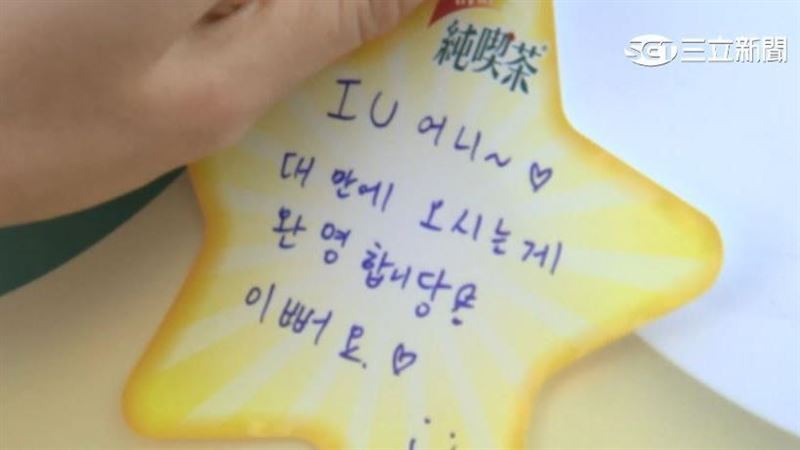 SET 三立新聞
純喫茶
IU 어니~ ♡
대만에 오시는게
완영합니당요
이뻐요. ♡